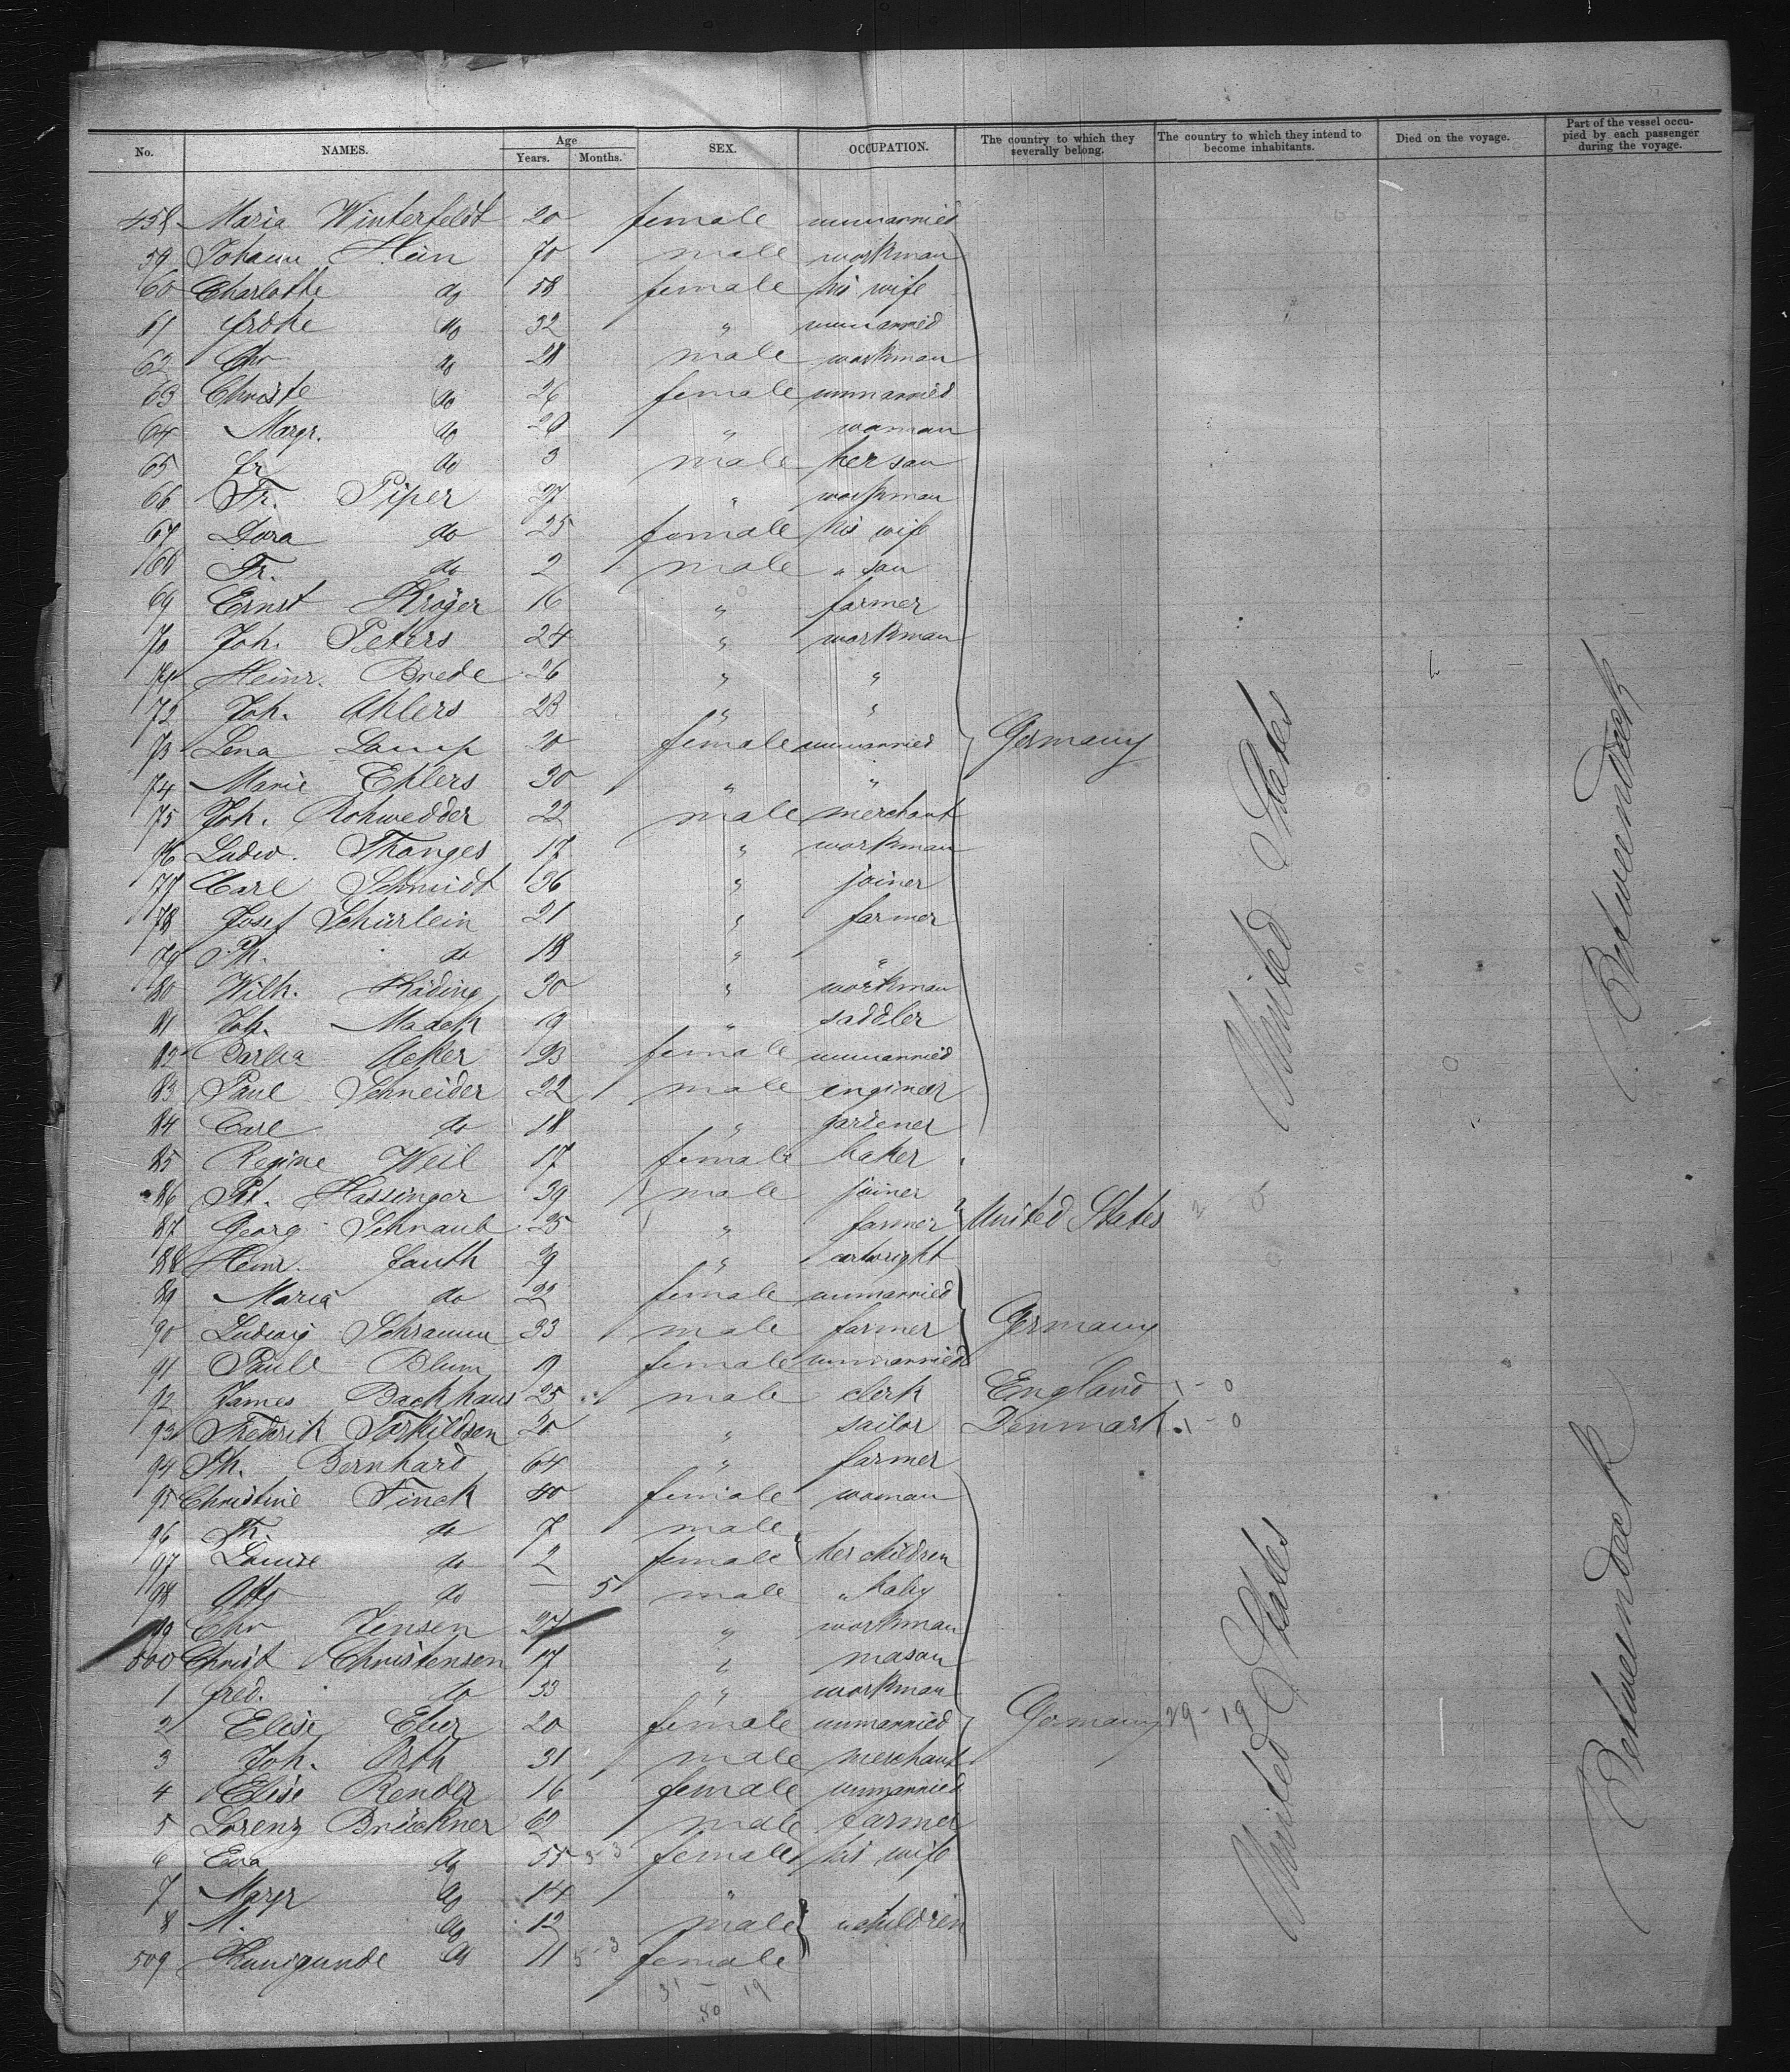 No. NAMES. Age Years. Months. SEX. OCCUPATION. The country to which they severally belong. The country to which they intend to become inhabitants. Died on the voyage. Part of the vessel occupied by each passenger during the voyage.
458 Maria Winterfeldt 20 female unmarried
59 Johann Hein 70 male workman
60 Charlotte do 58 female his wife
61 do 32 " unmarried
62 Chr do 28 male workman
63 Christe do 26 female unmarried
64 Margr. do " woman
65 do 3 male her son
66 Fr. Piper 27 " workman
67 Dora do 25 female his wife
68 Fr. do 2 male " son
69 Ernst Kröger 16 " farmer
70 Joh. Peters 24 " workman
71 Heinr. Brede 26 " "
72 Joh. Ahlers 23 " "
73 Lena Lamp 20 female unmarried Germany
74 Marie Ehlers 30 " "
75 Joh. Rohwedder 22 male merchant
76 Ludw. Thonges 17 " workman
77 Carl Schmidt 36 " joiner
78 Josef Schürlein 21 " farmer
79 Ph. do 18 " "
80 Wilh. Räding 30 " workman
81 Joh. Mack 19 " saddler
82 Barba Acker 23 female unmarried
83 Paul Schneider 22 male engineer
84 Carl do 18 " gardener
United States
Betweendeck
85 Regine Weil 17 female baker
86 Pet. Hassinger 39 male joiner
87 Georg Schnaub 25 " farmer United States
88 Heinr. Fauth 39 " cartwright
89 Maria do 22 female unmarried
90 Ludwig Schramm 33 male farmer Germany
91 Paule Blum 19 female unmarried
92 James Backhaus 25 male clerk England 1 - 0
93 Frederik Torkildsen 20 " sailor Denmark 1 - 0
94 Ph. Bernhard 64 " farmer
95 Christine Finck 40 female woman
96 Fr. do 7 male
97 Louise do 2 female her children
98 Otto do — 5 male " baby
99 Chr. Jensen 37 " workman
500 Christ Christensen 17 " mason
1 fred. do 33 " workman
2 Elise Eber 20 female unmarried Germany 29 - 19
3 Joh. Orth 31 male merchant
4 Elise Render 16 female unmarried
5 Lorenz Brückner 62 male farmer
6 Eva do 55 female his wife
7 Margr do 14 "
8 M. do 12 male " children
509 Kunigunde do 11 5 - 3 female
United States
Betweendeck
31 - 19
50